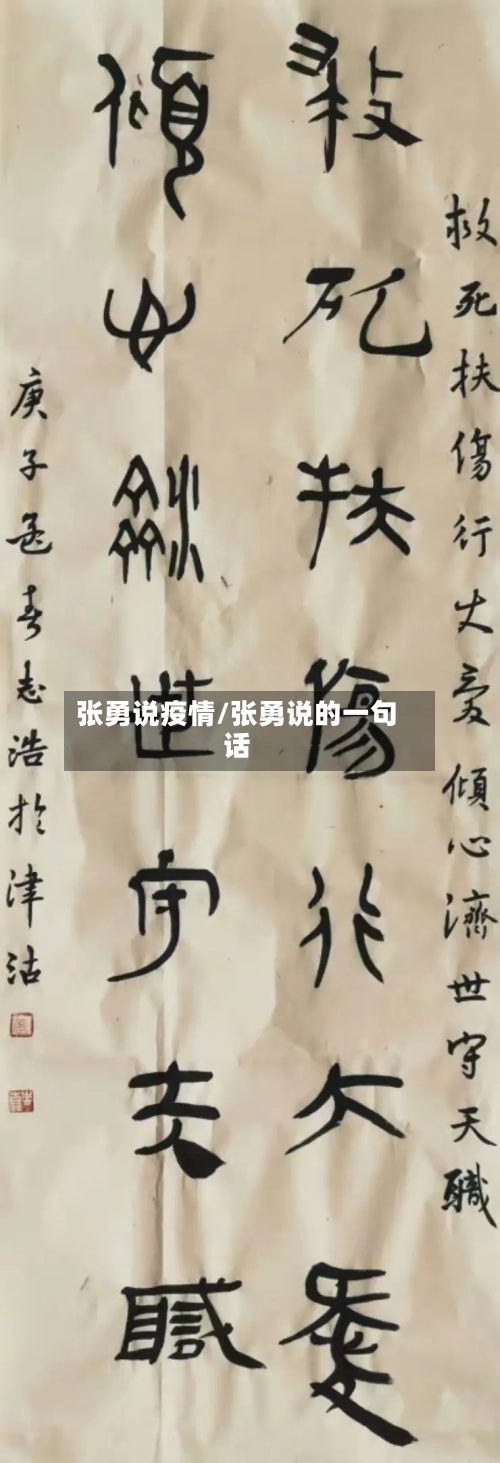 救死扶傷行大愛傾心濟世守天職
救死扶傷行大愛
傾心濟世守天職
庚子孟春志浩於津沽
张勇说疫情/张勇说的一句
话